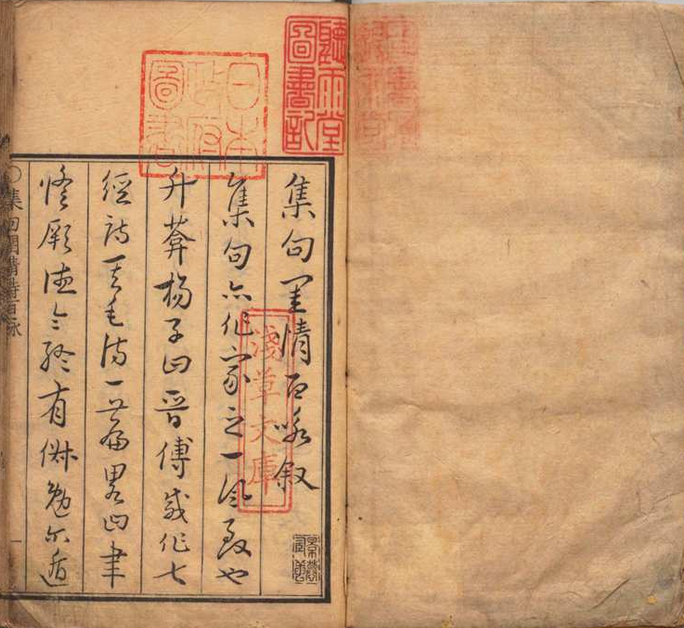 聽雨堂
圖書記
日本
政府
圖書
淺草文庫
集句閨情百咏叙
集句亦作家之一風致也
升菴楊子曰晉傅咸作七
經詩其毛詩一篇畧曰聿
脩厥德令終有俶勉尓遁
集句閨情詩百咏
一